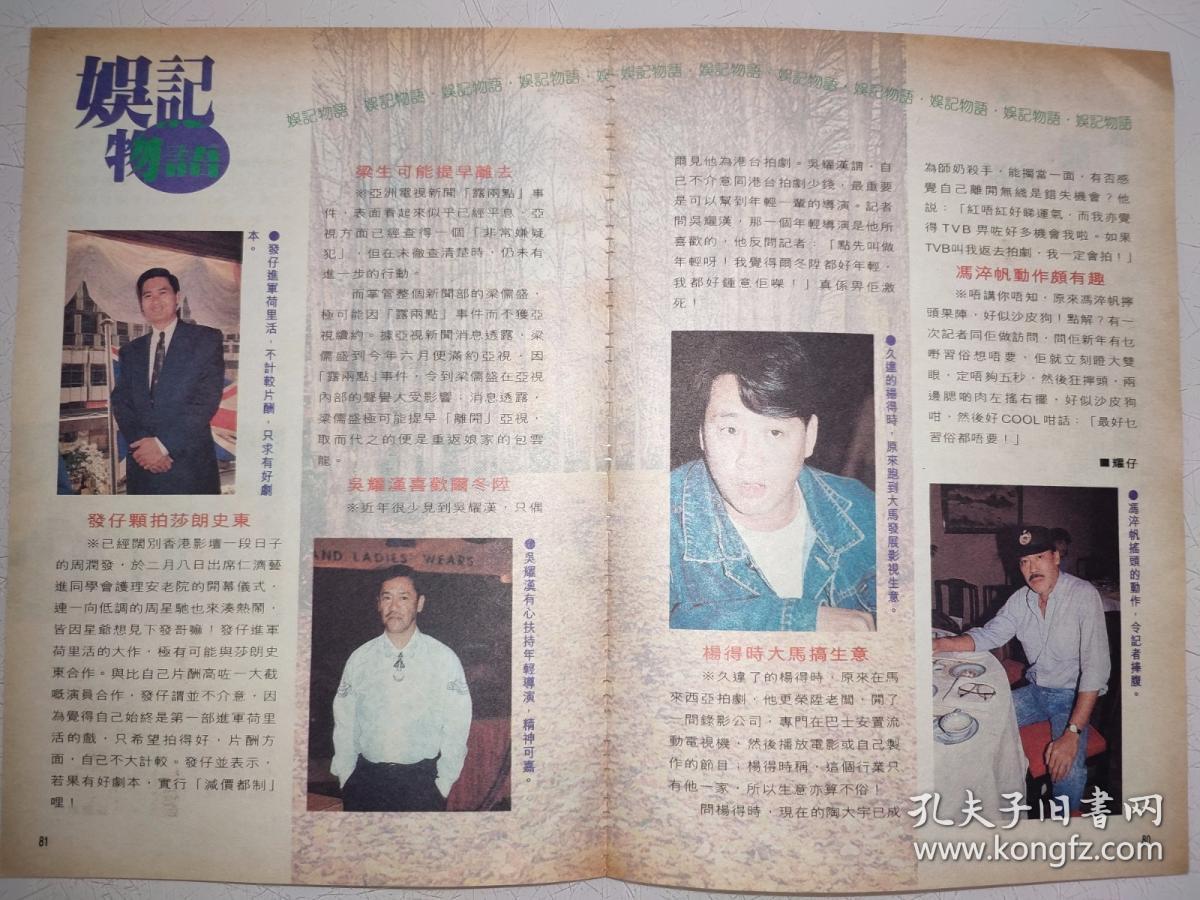 娛記
物語
娛記物語·娛記物語·娛記物語·娛·娛記物語·娛記物語·娛記物語·娛記物語·娛記物語·娛記物語·娛記物語
●發仔進軍荷里活，不計較片酬，只求有好劇
本。
發仔願拍莎朗史東
※已經闊別香港影壇一段日子
的周潤發，於二月八日出席仁濟藝
進同學會護理安老院的開幕儀式，
連一向低調的周星馳也來湊熱鬧，
皆因星爺想見下發哥嘛！發仔進軍
荷里活的大作，極有可能與莎朗史
東合作。與比自己片酬高咗一大截
嘅演員合作，發仔謂並不介意，因
為覺得自己始終是第一部進軍荷里
活的戲，只希望拍得好，片酬方
面，自己不大計較。發仔並表示，
若果有好劇本，實行「減價都制」
哩！
81
梁生可能提早離去
※亞洲電視新聞「露兩點」事
件，表面看起來似乎已經平息，亞
視方面已經查得一個「非常嫌疑
犯」，但在未徹查清楚時，仍未有
進一步的行動。
而掌管整個新聞部的梁儒盛，
極可能因「露兩點」事件而不獲亞
視續約。據亞視新聞消息透露，梁
儒盛到今年六月便滿約亞視，因
「露兩點」事件，令到梁儒盛在亞視
內部的聲譽大受影響，消息透露，
梁儒盛極可能提早「離開」亞視，
取而代之的便是重返娘家的包雲
龍。
吳耀漢喜歡爾冬陞
※近年很少見到吳耀漢，只偶
AND LADIES' WEARS
●吳耀漢有心扶持年輕導演，精神可嘉。
爾見他為港台拍劇。吳耀漢謂，自
己不介意同港台拍劇少錢，最重要
是可以幫到年輕一輩的導演。記者
問吳耀漢，那一個年輕導演是他所
喜歡的，他反問記者：「點先叫做
年輕呀！我覺得爾冬陞都好年輕，
我都好鍾意佢㗎！」真係畀佢激
死！
●久違的楊得時，原來跑到大馬發展影視生意。
楊得時大馬搞生意
※久違了的楊得時，原來在馬
來西亞拍劇，他更榮陞老闆，開了
一間錄影公司，專門在巴士安置流
動電視機，然後播放電影或自己製
作的節目；楊得時稱，這個行業只
有他一家，所以生意亦算不俗！
問楊得時，現在的陶大宇已成
為師奶殺手，能獨當一面，有否感
覺自己離開無綫是錯失機會？他
說：「紅唔紅好睇運氣，而我亦覺
得TVB畀咗好多機會我啦。如果
TVB叫我返去拍劇，我一定會拍！」
馮淬帆動作頗有趣
※唔講你唔知，原來馮淬帆擰
頭果陣，好似沙皮狗！點解？有一
次記者同佢做訪問，問佢新年有乜
嘢習俗想唔要，佢就立刻瞪大雙
眼，定唔夠五秒，然後狂擰頭，兩
邊腮啲肉左搖右擺，好似沙皮狗
咁，然後好COOL咁話：「最好乜
習俗都唔要！」
■耀仔
●馮淬帆搖頭的動作，令記者捧腹。
80
孔夫子旧书网
www.kongfz.com